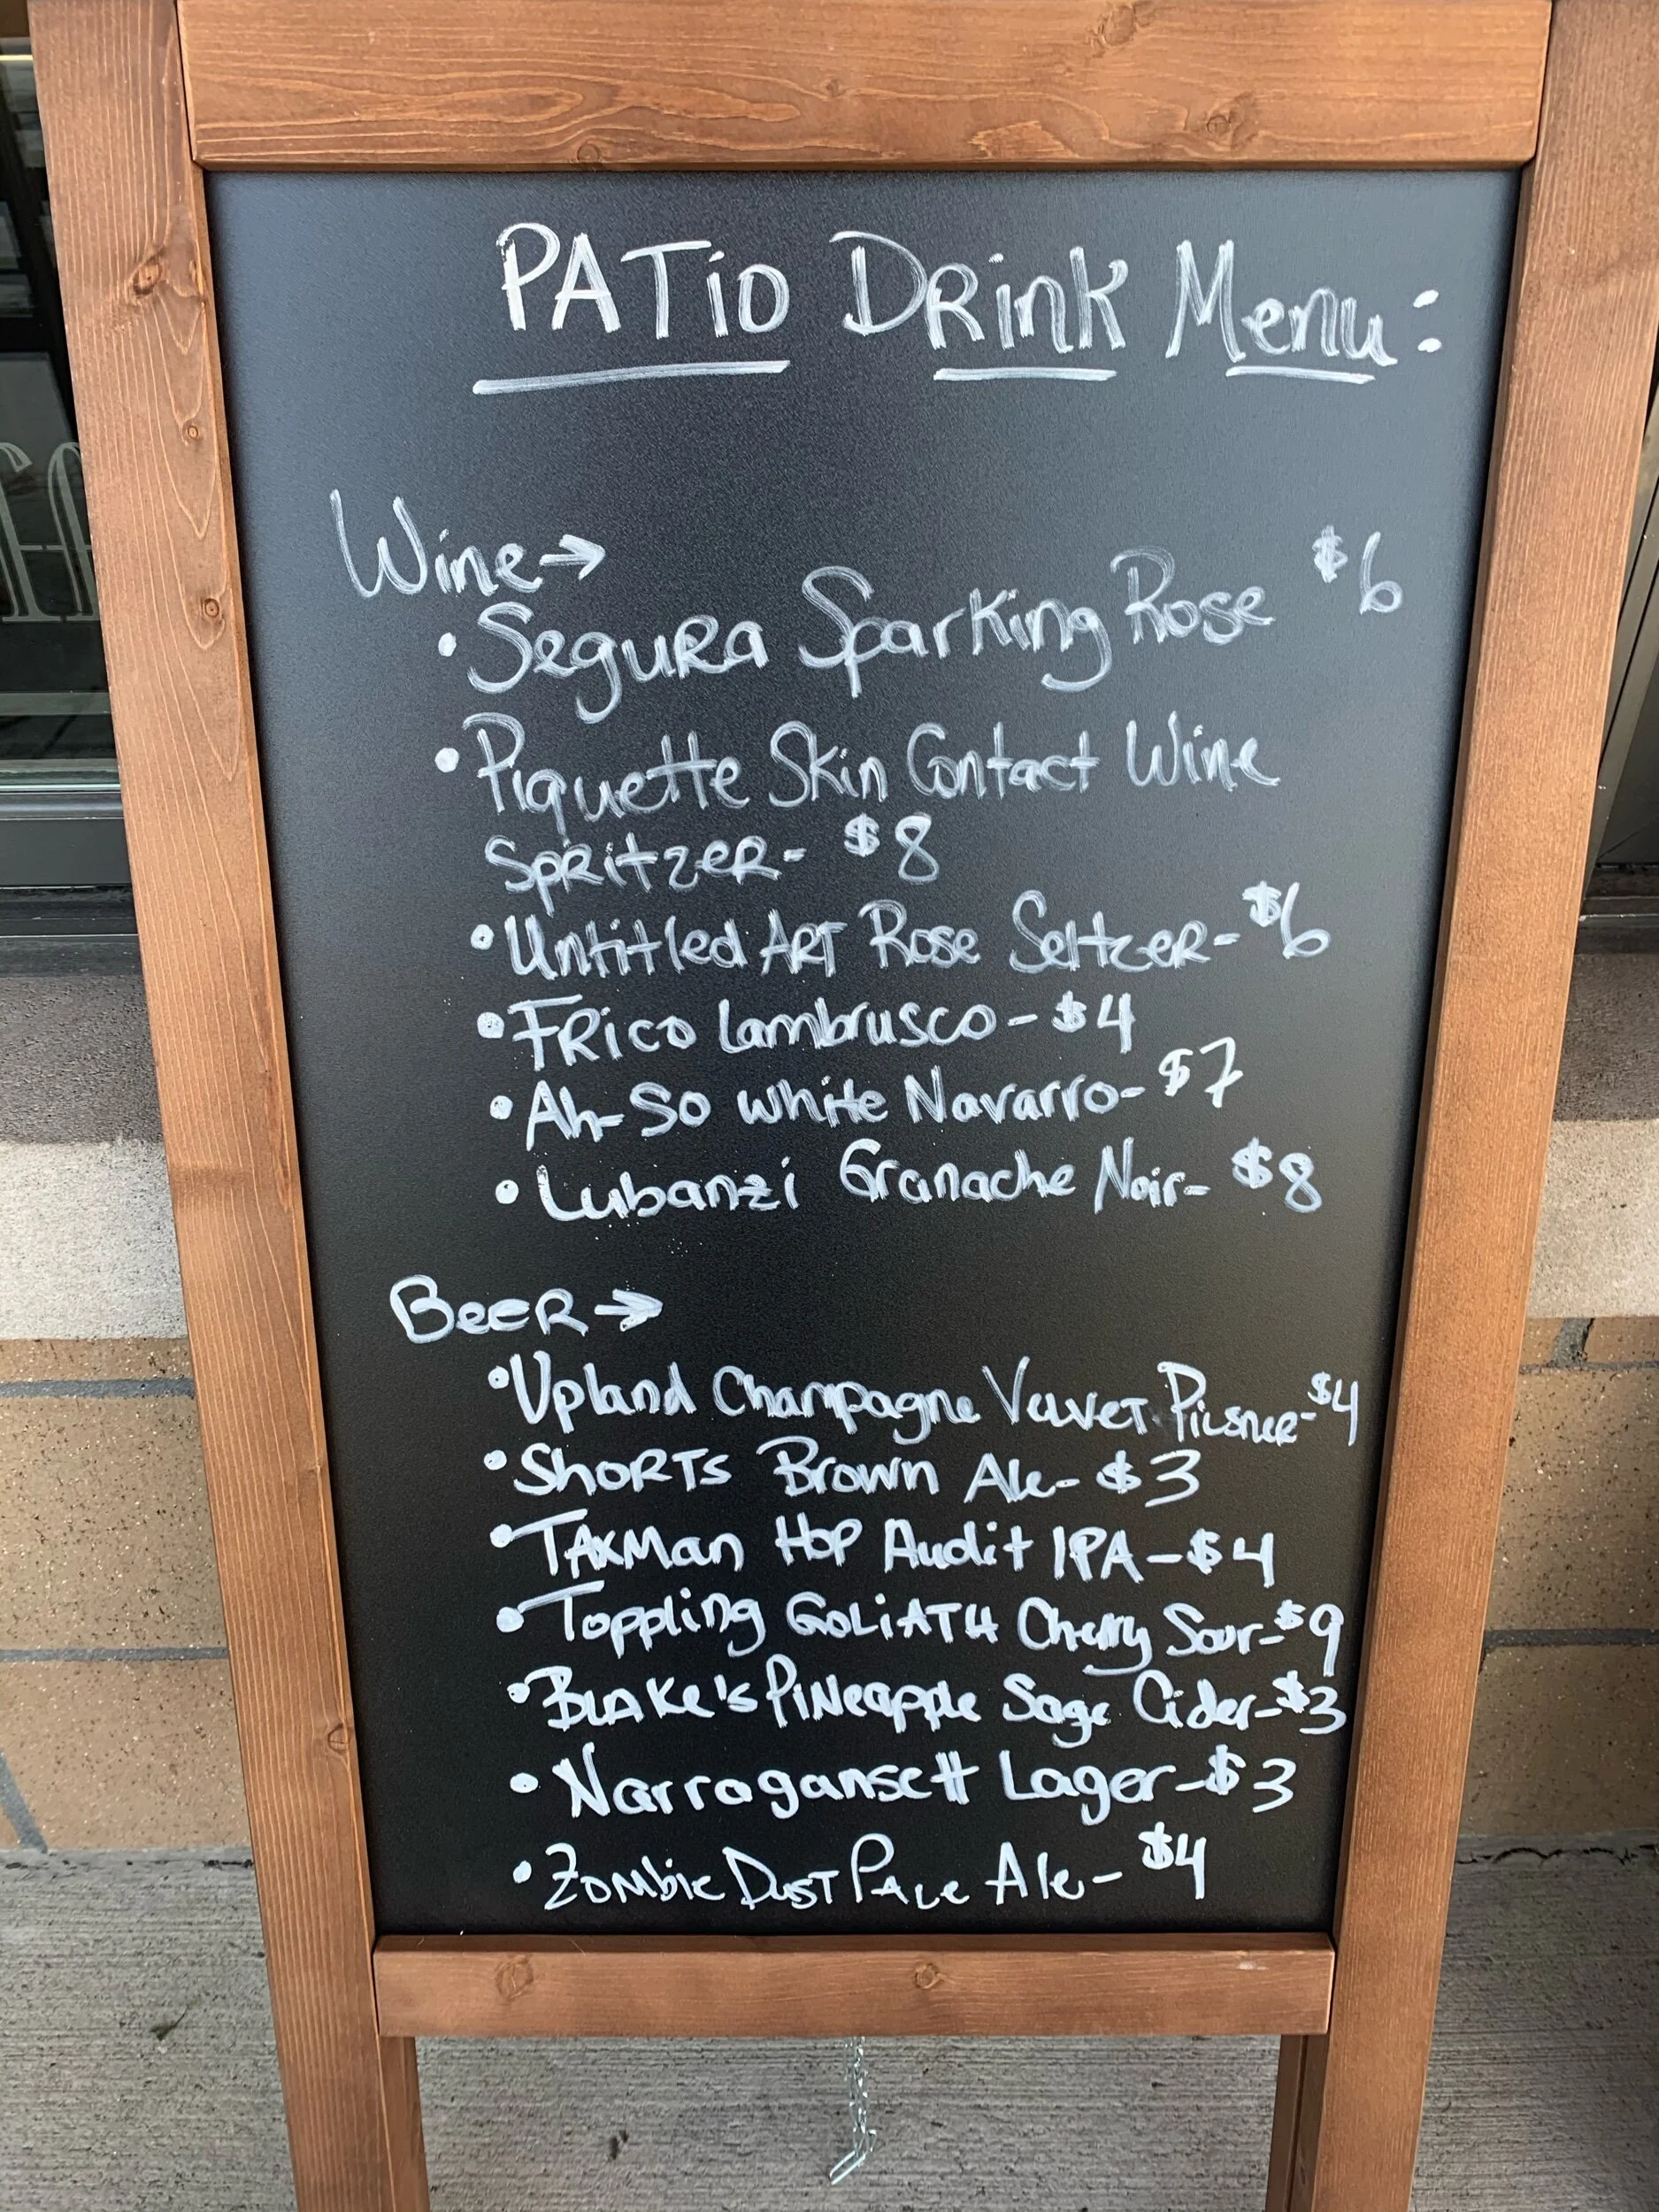 PATiO DRink Menu:
Wine→
• Segura Sparking Rose $6
• Piquette Skin Contact Wine
Spritzer- $8
• Untitled Art Rose Seltzer- $6
• Frico Lambrusco - $4
• Ah-So White Navarro- $7
• Lubanzi Granache Noir- $8
Beer→
• Upland Champagne Velvet Pilsner- $4
• Shorts Brown Ale- $3
• Taxman Hop Audit IPA - $4
• Toppling Goliath Cherry Sour- $9
• Blake's Pineapple Sage Cider- $3
• Narragansett Lager- $3
• Zombie Dust Pale Ale- $4